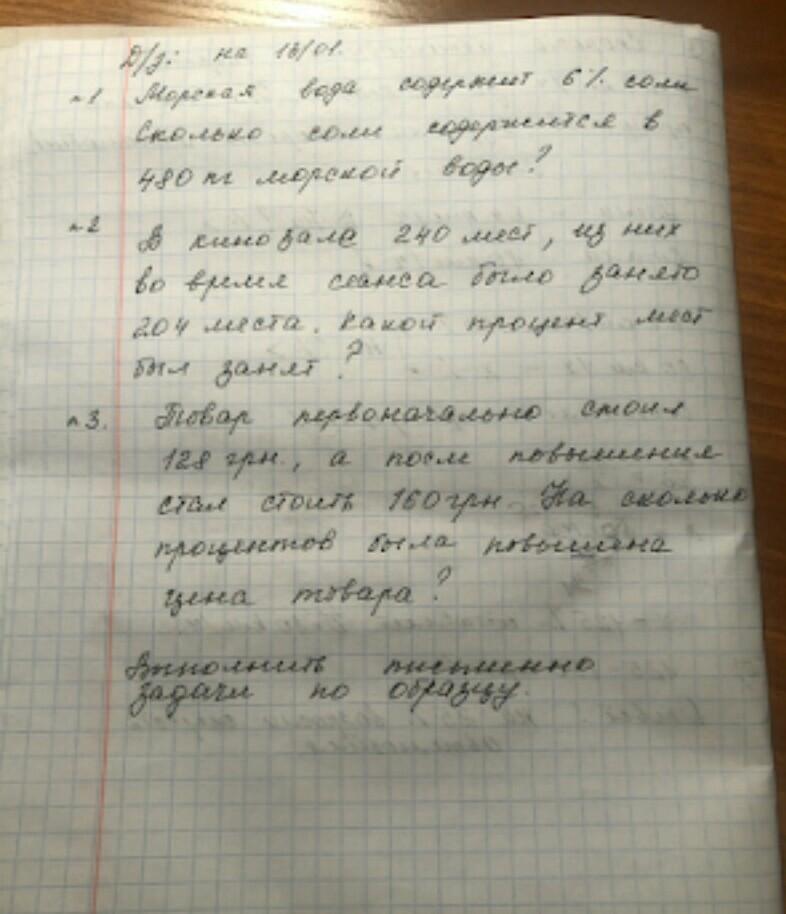 Д/з: на 13/01.
n1 Морская вода содержит 6% соли
Сколько соли содержится в
480 кг морской воды?
n2 В кинозале 240 мест, из них
во время сеанса было занято
204 места. Какой процент мест
был занят?
n3. Товар первоначально стоил
128 грн., а после повышения
стал стоить 160 грн. На сколько
процентов была повышена
цена товара?
Выполнить письменно
задачи по образцу.